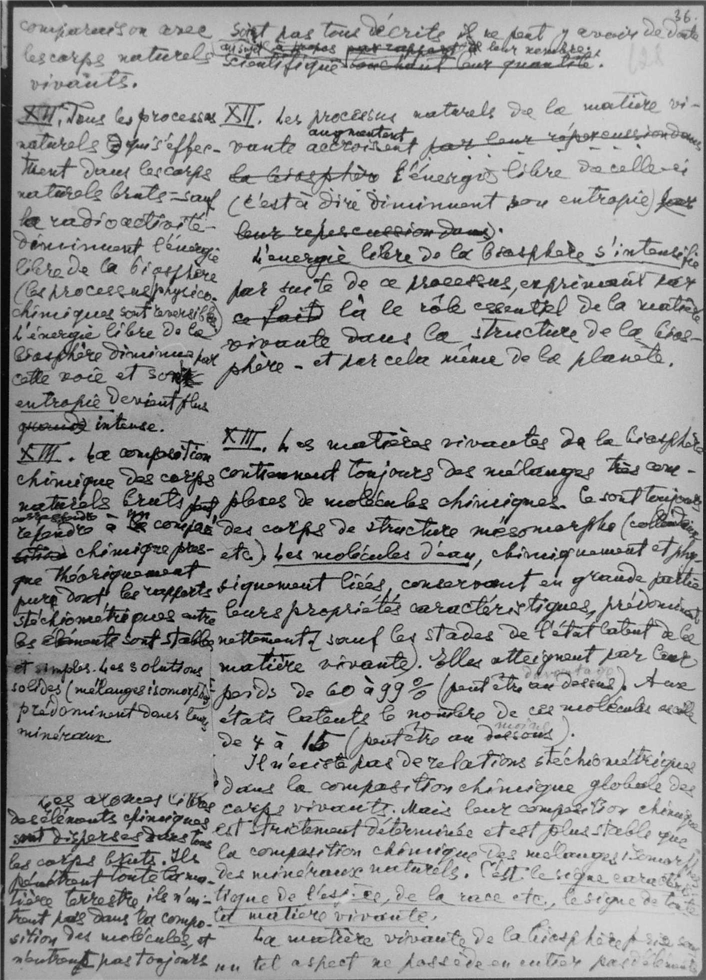 36.
comparaison avec
les corps naturels
vivants.
XII. Tous les processus
naturels qui s'effec-
tuent dans les corps
naturels bruts - sauf
la radioactivité -
diminuent l'énergie
libre de la biosphère
(les processus physico-
chimiques sont reversibles)
L'énergie libre de la
biosphère diminue par
cette voie et son
entropie devient plus
grande intense.
XIII. La composition
chimique des corps
naturels bruts peut
correspondre à un
chimique pres-
que théoriquement
pure dont les rapports
stéchiométriques entre
les éléments sont stables
et simples. Les solutions
solides (mélanges isomorphes)
prédominent dans les
minéraux
Les atomes libres
des éléments chimiques
sont disperses dans tous
les corps bruts. Ils
pénètrent toute la ma-
tière terrestre, ils n'en-
trent pas dans la compo-
sition des molécules, et
n'entrent pas toujours
sont pas tous décrits il ne peut y avoir de doute
au sujet à temps par rapport à leur nombre
scientifique touchant leur quantité.
XII. Les processus naturels de la matière vi-
augmentent
vante accroissent par leur répercussion dans
la biosphère l'énergie libre de celle-ci
(c'est à dire diminuent son entropie) par
leur repercussion dans).
L'énergie libre de la biosphère s'intensifie
par suite de ce processus, exprimant par
ce fait là le rôle essentiel de la matière
vivante dans la structure de la bios-
phère - et par cela même de la planète.
XIII. Les matières vivantes de la biosphère
contiennent toujours des mélanges très com-
plexes de molécules chimiques. Ce sont toujours
des corps de structure mésomorphe (colloïdaux,
etc). Les molécules d'eau, chimiquement et phy-
siquement liées, conservant en grande partie
leurs propriétés caractéristiques, prédominent
nettement (sauf les stades de l'état latent de la
matière vivante). Elles atteignent par leur
davantage
poids de 60 à 99 % (peut être au dessus). Aux
états latents le nombre de ces molécules oscille
moins
de 4 à 15 (peut être au dessous).
Il n'existe pas de relations stéchiométriques
dans la composition chimique globale des
corps vivants. Mais leur composition chimique
est strictement déterminée et est plus stable que
la composition chimique des mélanges isomorphes
des minéraux naturels. C'est le signe caractéris-
tique de l'espèce, de la race etc, le signe de toute
la matière vivante.
La matière vivante de la biosphère prise sous
un tel aspect ne possède en entier pas d'éléments